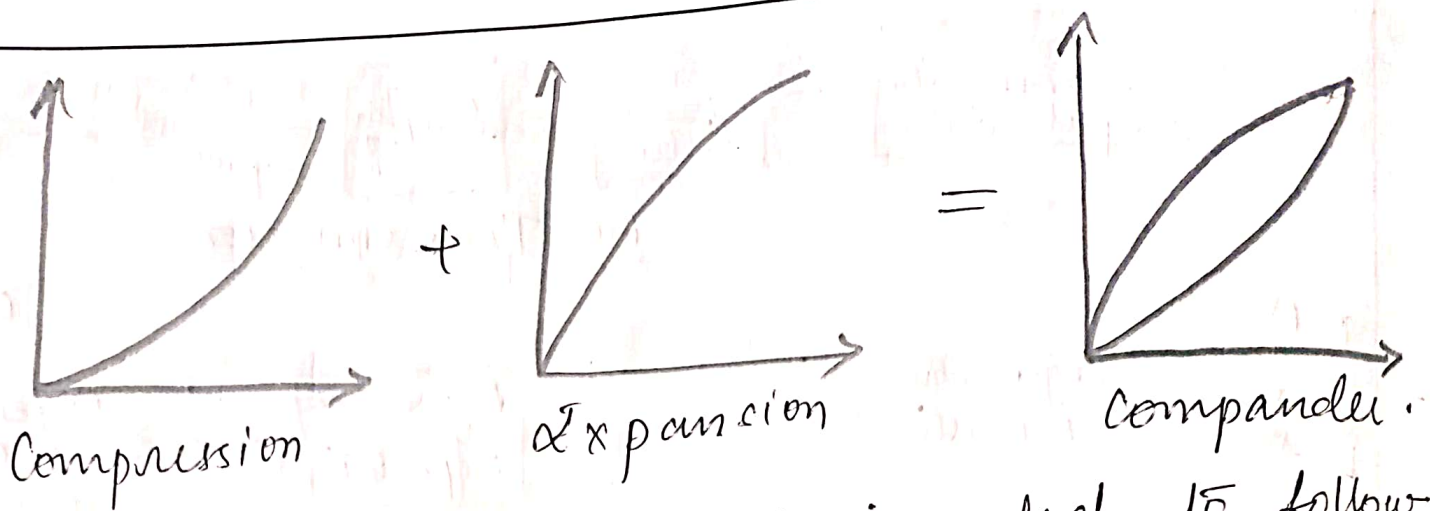 + =
Compression Expancion compander.
to follow